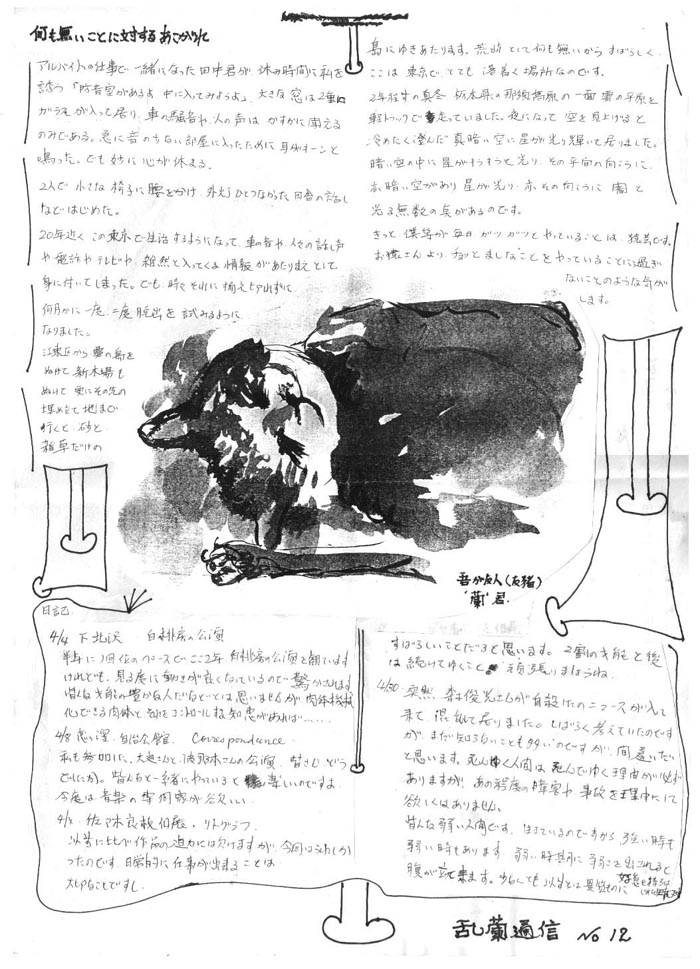 何も無いことに対するあこがれ
アルバイトの仕事で一緒になった田中君が休み時間に私を
誘う「防音室があるよ 中に入ってみようよ」大きな窓は2重に
ガラスが入って居り、車の騒音や人の声はかすかに聞える
のみである。急に音のしない部屋に入ったために耳がキーンと
鳴った。でも妙に心が休まる。
2人で小さな椅子に腰をかけ
などはじめた。
20年近くこの東京で生活するようになって、車の音や、人々の話し声
や電話やテレビや、雑然と入ってくる情報があたりまえとして
身に付いてしまった。でも、時々それに耐えられずに
何月かに一度、二度脱出を試みるように
なりました。
江東区から夢の島を
ぬけて新木場も
ぬけて更にその先の
埋め立て地まで
行くと砂と
雑草だけの
島にゆきあたります。荒涼として何も無いからすばらしく
ここは東京で、とても落着く場所なのです。
2年程前の真冬 栃木県の那須高原の一面雪の平原を
軽トラックで走っていました。夜になって空を見上げると
冷めたく澄んだ真暗い空に星が光り輝いて居りました。
暗い空の中に星がキラキラと光り、その平面の向こうに、
亦暗い空があり星が光り、亦その向こうに闇と
光る無数の点があるのです。
きっと僕等が毎日ガツガツとやっていることは、
お猿さんより、チョッとましなことをやっていることに過ぎ
ないことのような気が
します。
吾が友人(友猫)
「蘭」君.
日記
4/4 下北沢 白桃房の公演
半年に1回位のペースでここ2年白桃房の公演を観ています
けれども、見る度に動きが良くなっているので驚かされます
皆んな才能の豊かな人だなどとは思いませんが肉体機械
化できる肉体と、知恵があれば……
4/8 恵比寿 自治会館 Correspondence
私も参加した、大
でしたか。皆んなと一緒にやっていると楽しいのですよ
今度は音楽の専門家が欲しい。
佐々木良枝個展 リトグラフ
以前に比べ作品の迫力には欠けますが、今回は
ったのです、日常的に仕事が出来ることは
大切なことですし、
すばらしいことだなと思います。2割の才能と後
は続けてゆくこと 頑張りましょうね。
突然、 さんが自殺したのニュースが入って
来て、混乱して居りました。しばらく考えていたのです
が、まだ知らないことも多いのですが、間違いだ
と思います。死んでゆく人間は死んでゆく理由が必ず
ありますが、あの程度の障害や事故を理由にして
欲しくはありません。
皆んな弱い人間です。生きているのですから強い時も
弱い時もあります 弱い時期に弱さを出されると
腹が立って来ます。少なくても
乱蘭通信 No 12